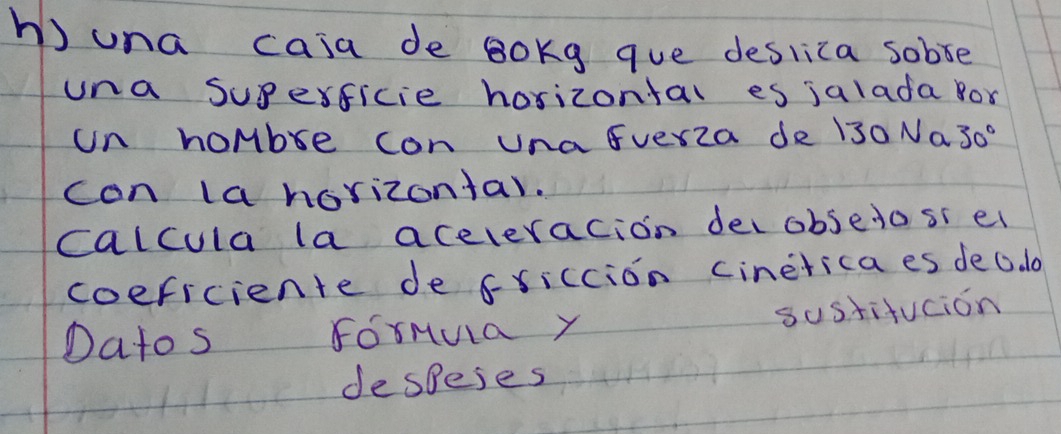 h) una caja de 80Kg que desliza sobre
una superficie horizontal es jalada por
un hombre con una fuerza de 130 N a 30°
con la horizontal.
calcula la aceleración del objseto si el
coeficiente de fricción cinética es de 0.10
Datos Fórmula y sustitución
despejes